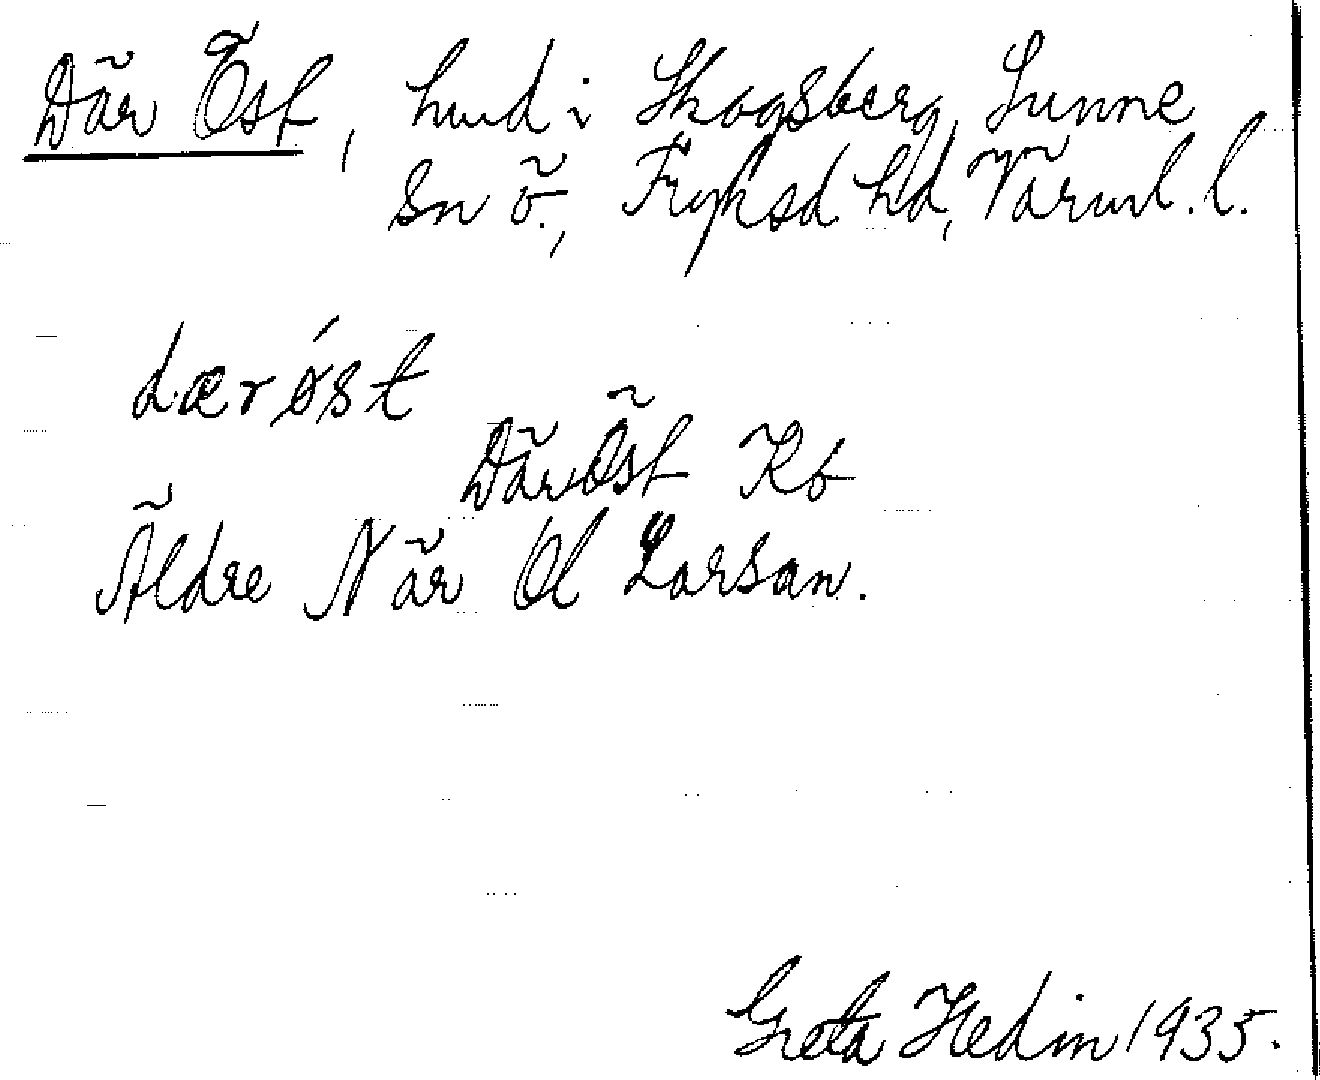 Där Öst, hmd i Skogsberg, Sunne
sn ö., Fryksd. hd, Värml. l.
dærǿst
Där Öst Kb
Äldre När Ol Larsan.
Greta Hedin 1935.